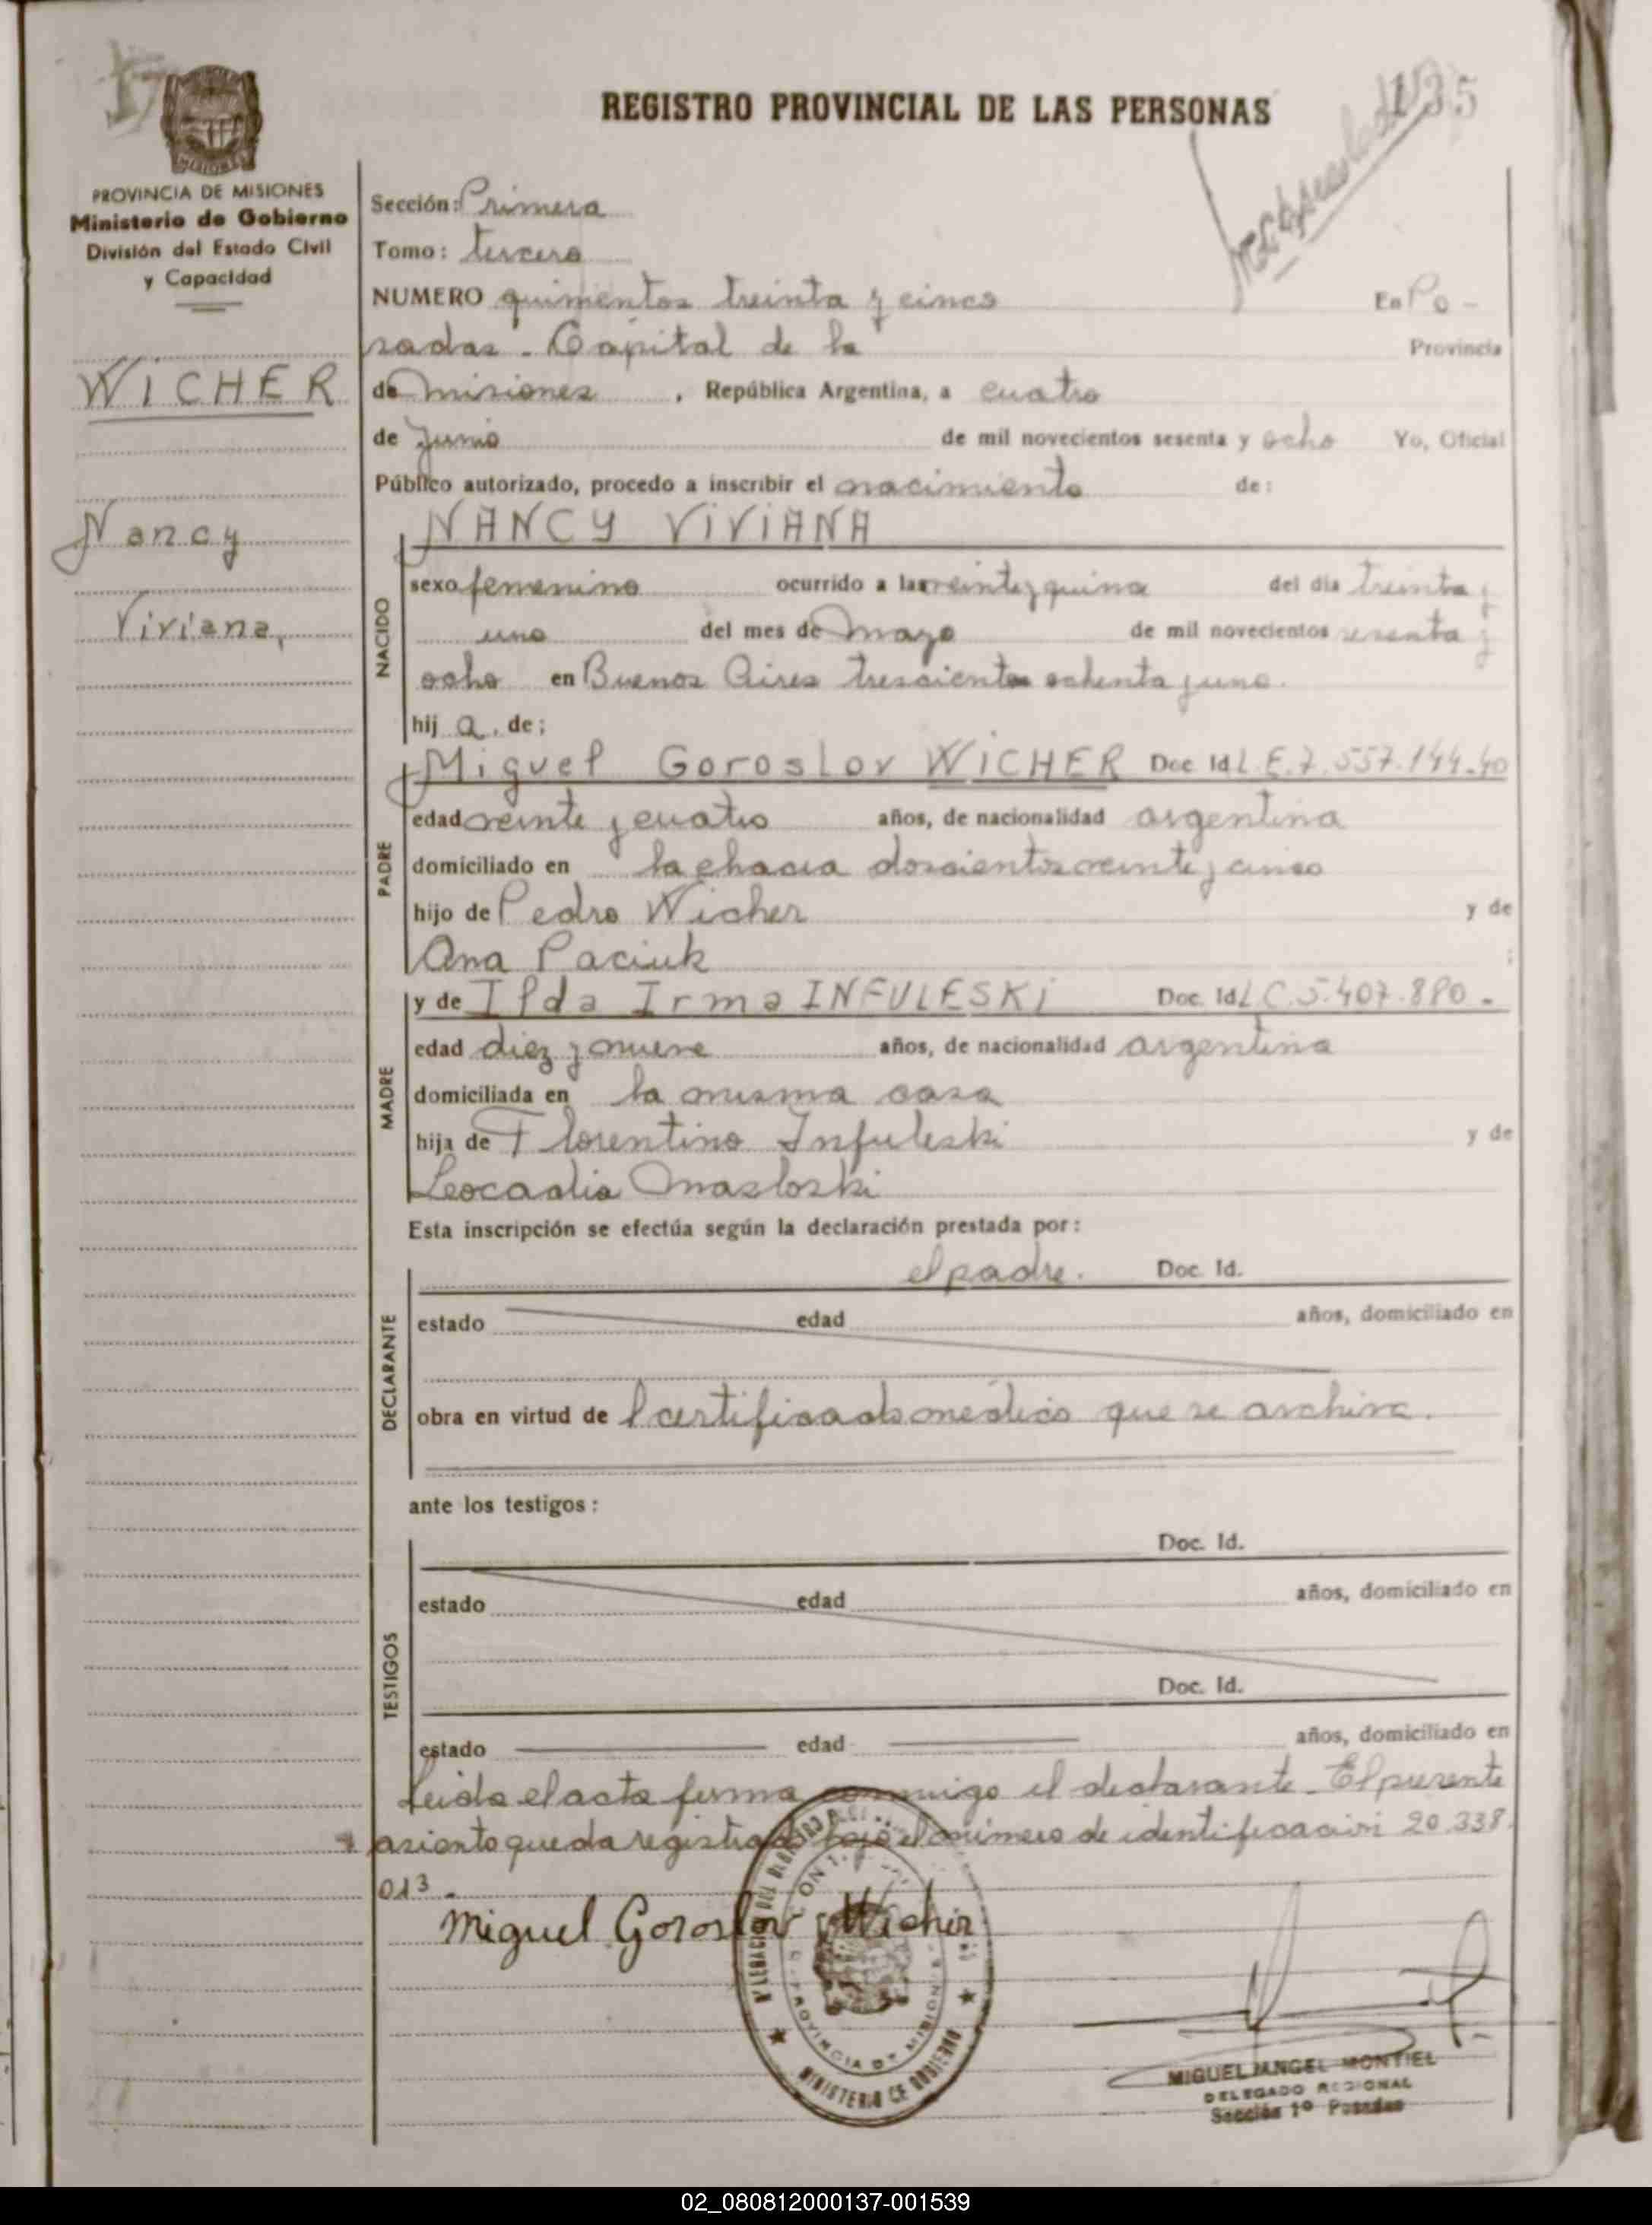 REGISTRO PROVINCIAL DE LAS PERSONAS
135
PROVINCIA DE MISIONES
Ministerio de Gobierno
División del Estado Civil
y Capacidad
WICHER
Nancy
Viviana,
Sección: Primera
Tomo: tercero
NUMERO quinientos treinta y cinco En Po-
sadas - Capital de la Provincia
de Misiones , República Argentina, a cuatro
de Junio de mil novecientos sesenta y ocho Yo, Oficial
Público autorizado, procedo a inscribir el nacimiento de:
NANCY VIVIANA
NACIDO
sexo femenino ocurrido a las veinte y quince del día treinta y
uno del mes de Mayo de mil novecientos sesenta y
ocho en Buenos Aires trescientos ochenta y uno.
hij a. de;
PADRE
Miguel Goroslov WICHER Doc Id L.E.7.557.144-40
edad veinte y cuatro años, de nacionalidad argentina
domiciliado en la chacra doscientos veinte y cinco
hijo de Pedro Wicher y de
Ana Paciuk
MADRE
y de Ilda Irma INFULESKi Doc. Id L.C.5.407.880.-
edad diez y nueve años, de nacionalidad argentina
domiciliada en la misma casa
hija de Florentino Infuleski y de
Leocadia Masloski
Esta inscripción se efectúa según la declaración prestada por:
DECLARANTE
el padre. Doc. Id.
estado edad años, domiciliado en
obra en virtud de l certificado médico que se archiva.
ante los testigos:
TESTIGOS
Doc. Id.
estado edad años, domiciliado en
Doc. Id.
estado edad años, domiciliado en
Leida el acta firma conmigo el declarante. El presente
asiento queda registrado bajo el número de identificación 20.338.
013.-
Miguel Goroslov Wicher
PROVINCIA DE MISIONES
MINISTERIO DE GOBIERNO
MIGUEL ANGEL MONTIEL
DELEGADO REGIONAL
Sección 1º Posadas
02_080812000137-001539